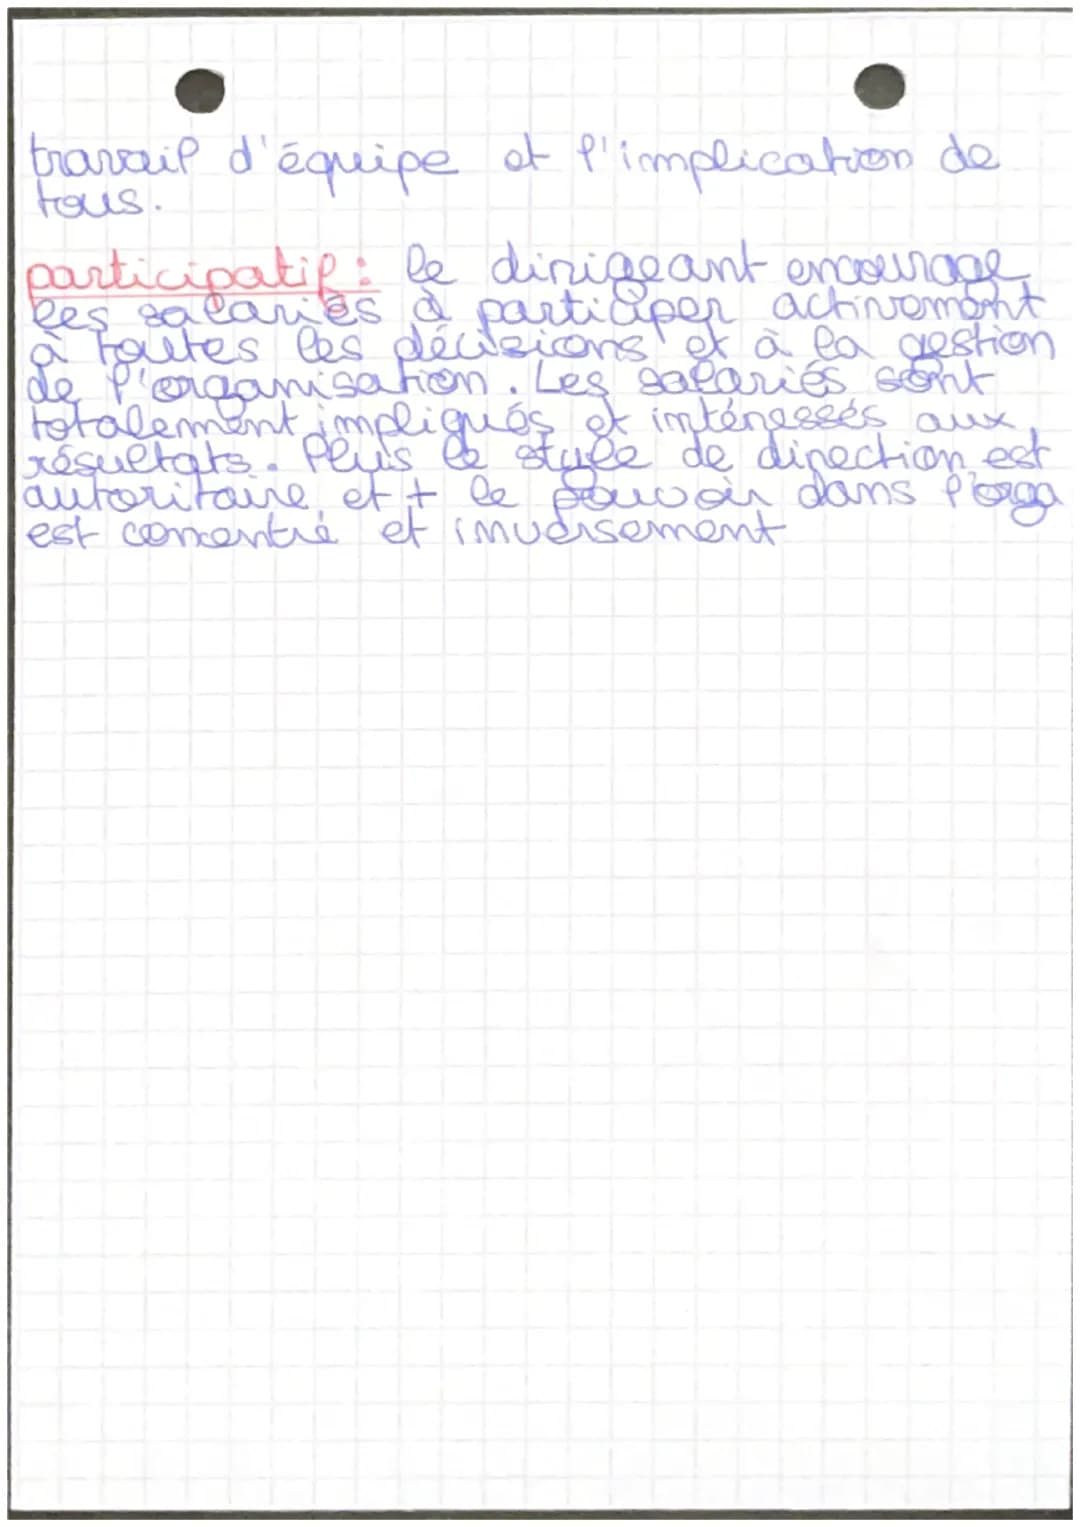 travail d'équipe et l'implication de
tous.
participatif : le dirigeant encourage
les salariés à participer activement
à toutes les décisions et à la gestion
de l'organisation. Les salariés sont
totalement impliqués et intéressés aux
résultats. Plus le style de direction est
autoritaire, et + le pouvoir dans l'orga
est concentré et inversement